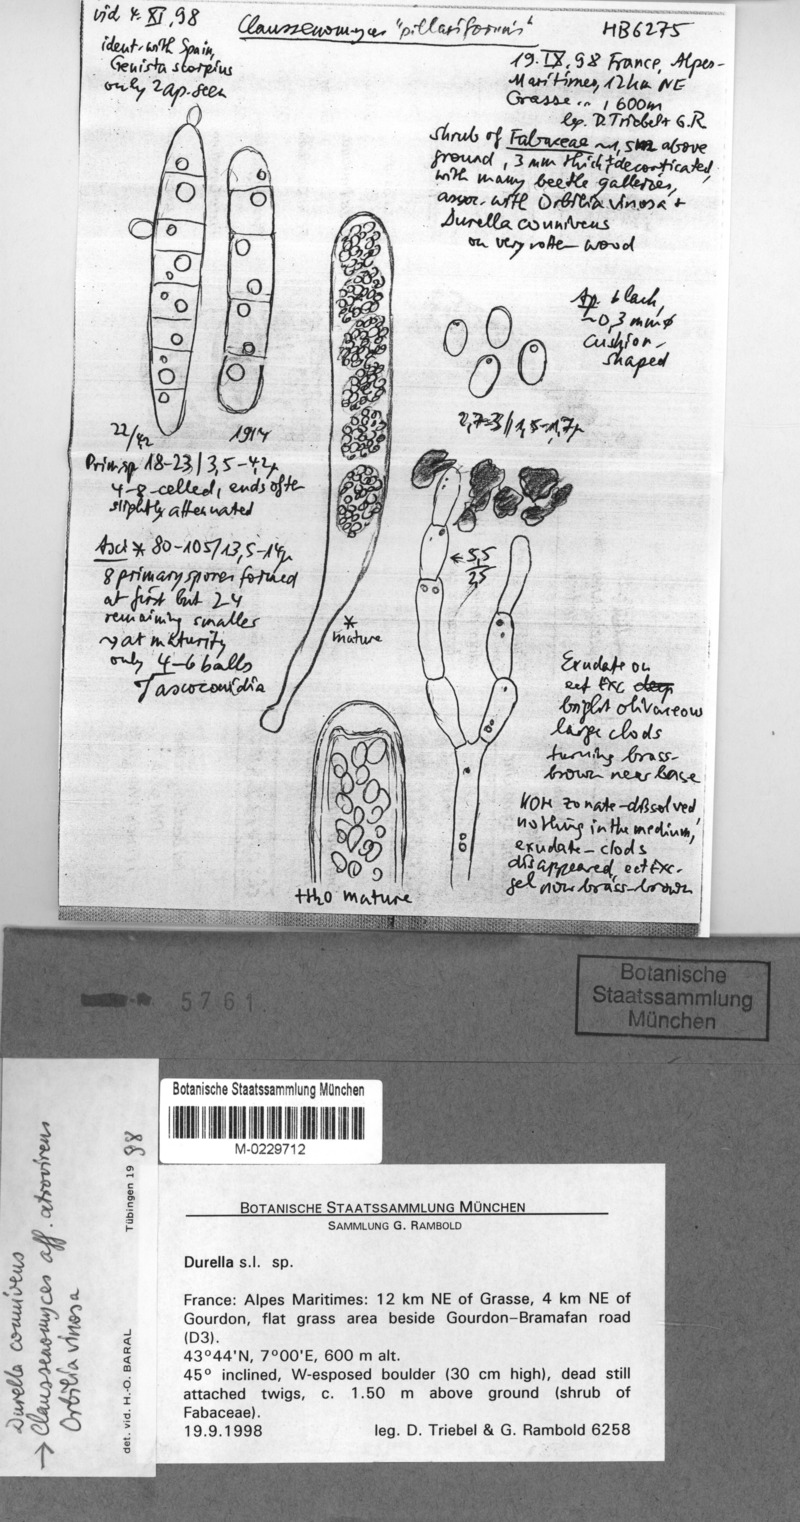 vid 4. XI, 98
Claussenomyces "pillariformis"
HB6275
ident. with Spain,
Genista scorpius
only 2 ap. seen
19. IX, 98 France, Alpes-
Maritimes, 12 km NE
Grasse .. , 600m
D. Triebel + G. R
shrub of Fabaceae ~1,5m above
ground, 3 mm thick, decorticated,
with many beetle galleries,
assoc. with Orbilia vinosa +
Durella connivens
on very rotten wood
Ap. black,
~0,3 mm ø
cushion-
shaped
2,7-3/1,5-1,7µ
22/4,2
19/4
Prim.sp 18-23/3,5-4,2µ
4-8-celled, ends often
slightly attenuated
Asci * 80-105/13,5-14µ
8 primary spores formed
at first but 2-4
remaining smaller
→ at maturity
only 4-6 balls
of ascoconidia
*
mature
← 5,5
2,5
Exudate on
ect Exc
bright olivaceous
large clods
turning brass-
brown near base
KOH zonate-dissolved
nothing in the medium,
exudate-clods
disappeared, ect Exc-
gel now brass-brown
H2O mature
5761
Botanische
Staatssammlung
München
Durella connivens
→ Claussenomyces aff. atrovirens
Orbilia vinosa
det. vid. H.-O. BARAL Tübingen 19 98
Botanische Staatssammlung München
M-0229712
BOTANISCHE STAATSSAMMLUNG MÜNCHEN
SAMMLUNG G. RAMBOLD
Durella s.l. sp.
France: Alpes Maritimes: 12 km NE of Grasse, 4 km NE of
Gourdon, flat grass area beside Gourdon–Bramafan road
(D3).
43°44'N, 7°00'E, 600 m alt.
45° inclined, W-esposed boulder (30 cm high), dead still
attached twigs, c. 1.50 m above ground (shrub of
Fabaceae).
19.9.1998 leg. D. Triebel & G. Rambold 6258